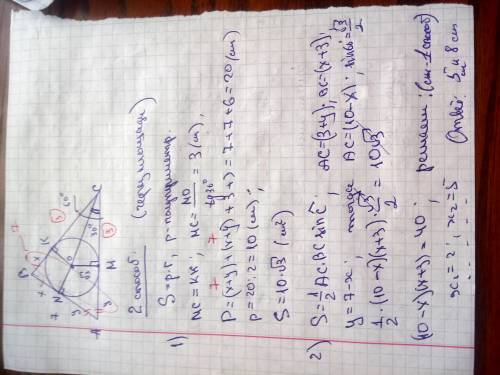 2 способ. (через площадь)
1) S=p·r, p-полупериметр.
MC=KC; MC = MO / tg30° = 3 (см);
P=(x+y)+(x+y)+3+3=7+7+6=20(см)
p=20:2=10(см);
S=10·√3 (см²)
2) S=½AC·BC·sinC; AC=(3+y); BC=(x+3);
y=7-x; тогда AC=(10-x); sin60°=√3/2
½·(10-x)(x+3)·√3/2=10√3
(10-x)(x+3)=40; решаем: (см. 1 способ)
x₁=2; x₂=5 Ответ: 5 см и 8 см
7
B
x
K
60°
3
C
30°
3
M
O
√3
N
7
x
y
3
A
7
7